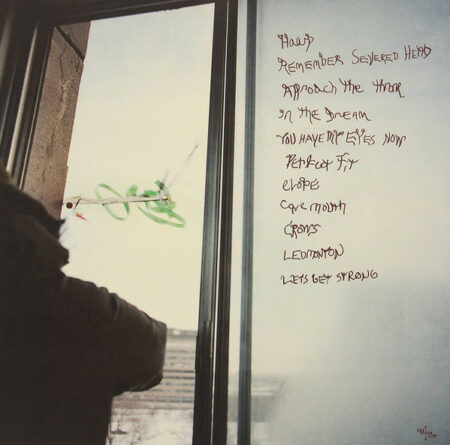 REMEMBER SEVERED HEAD
Approach the
in the DREAM
YOU HAVE MY EYES NOW
Perfect Fit
elope
Cave mouth
CROWS
LEDMONTON
LETS GET STRONG